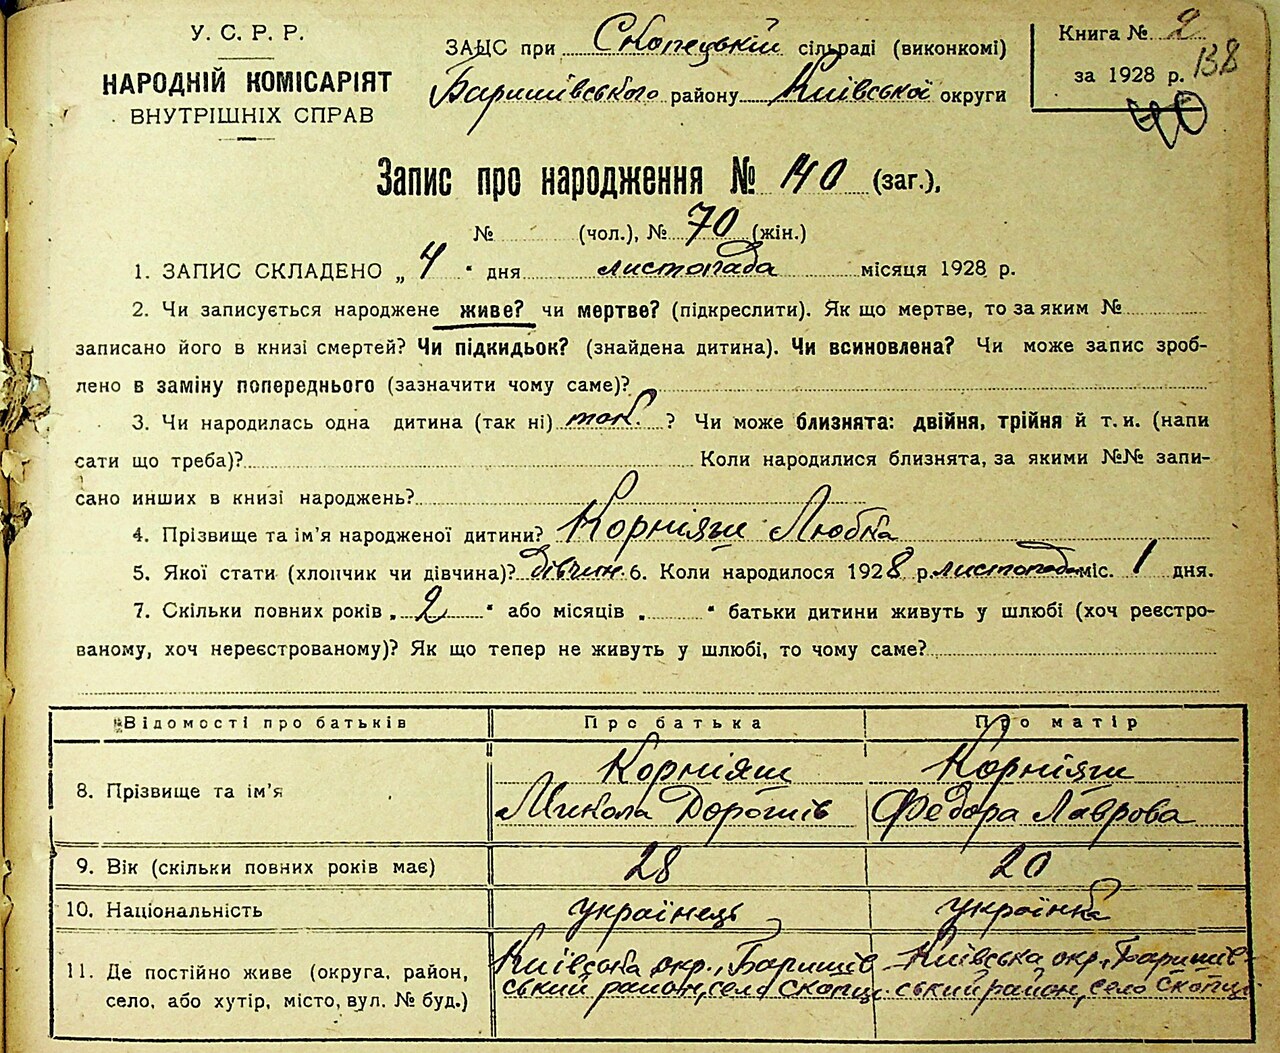 У. С. Р. Р.
НАРОДНІЙ КОМІСАРІЯТ
ВНУТРІШНІХ СПРАВ
ЗАЦС при Скопецькій сільраді (виконкомі)
Баришівського району Київської округи
Книга № 2
за 1928 р. 138
40
Запис про народження № 140 (заг.),
№ (чол.), № 70 (жін.)
1. ЗАПИС СКЛАДЕНО „ 4 " дня листопада місяця 1928 р.
2. Чи записується народжене живе? чи мертве? (підкреслити). Як що мертве, то за яким №
записано його в книзі смертей? Чи підкидьок? (знайдена дитина). Чи всиновлена? Чи може запис зроб-
лено в заміну попереднього (зазначити чому саме)?
3. Чи народилась одна дитина (так ні) так. ? Чи може близнята: двійня, трійня й т. и. (напи
сати що треба)? Коли народилися близнята, за якими №№ запи-
сано инших в книзі народжень?
4. Прізвище та ім'я народженої дитини? Корніяш Любка
5. Якої стати (хлопчик чи дівчина)? дівчин. 6. Коли народилося 1928 р. листопада міс. 1 дня.
7. Скільки повних років „ 2 " або місяців „ " батьки дитини живуть у шлюбі (хоч реєстро-
ваному, хоч нереєстрованому)? Як що тепер не живуть у шлюбі, то чому саме?
Відомості про батьків Про батька Про матір
8. Прізвище та ім'я Корніяш Микола Дорошів Корніяш Федора Лаврова
9. Вік (скільки повних років має) 28 20
10. Національність українець українка
11. Де постійно живе (округа, район,
село, або хутір, місто, вул. № буд.)
Київська окр., Баришів
ський район, село Скопці
Київська окр., Баришів-
ський район, село Скопці